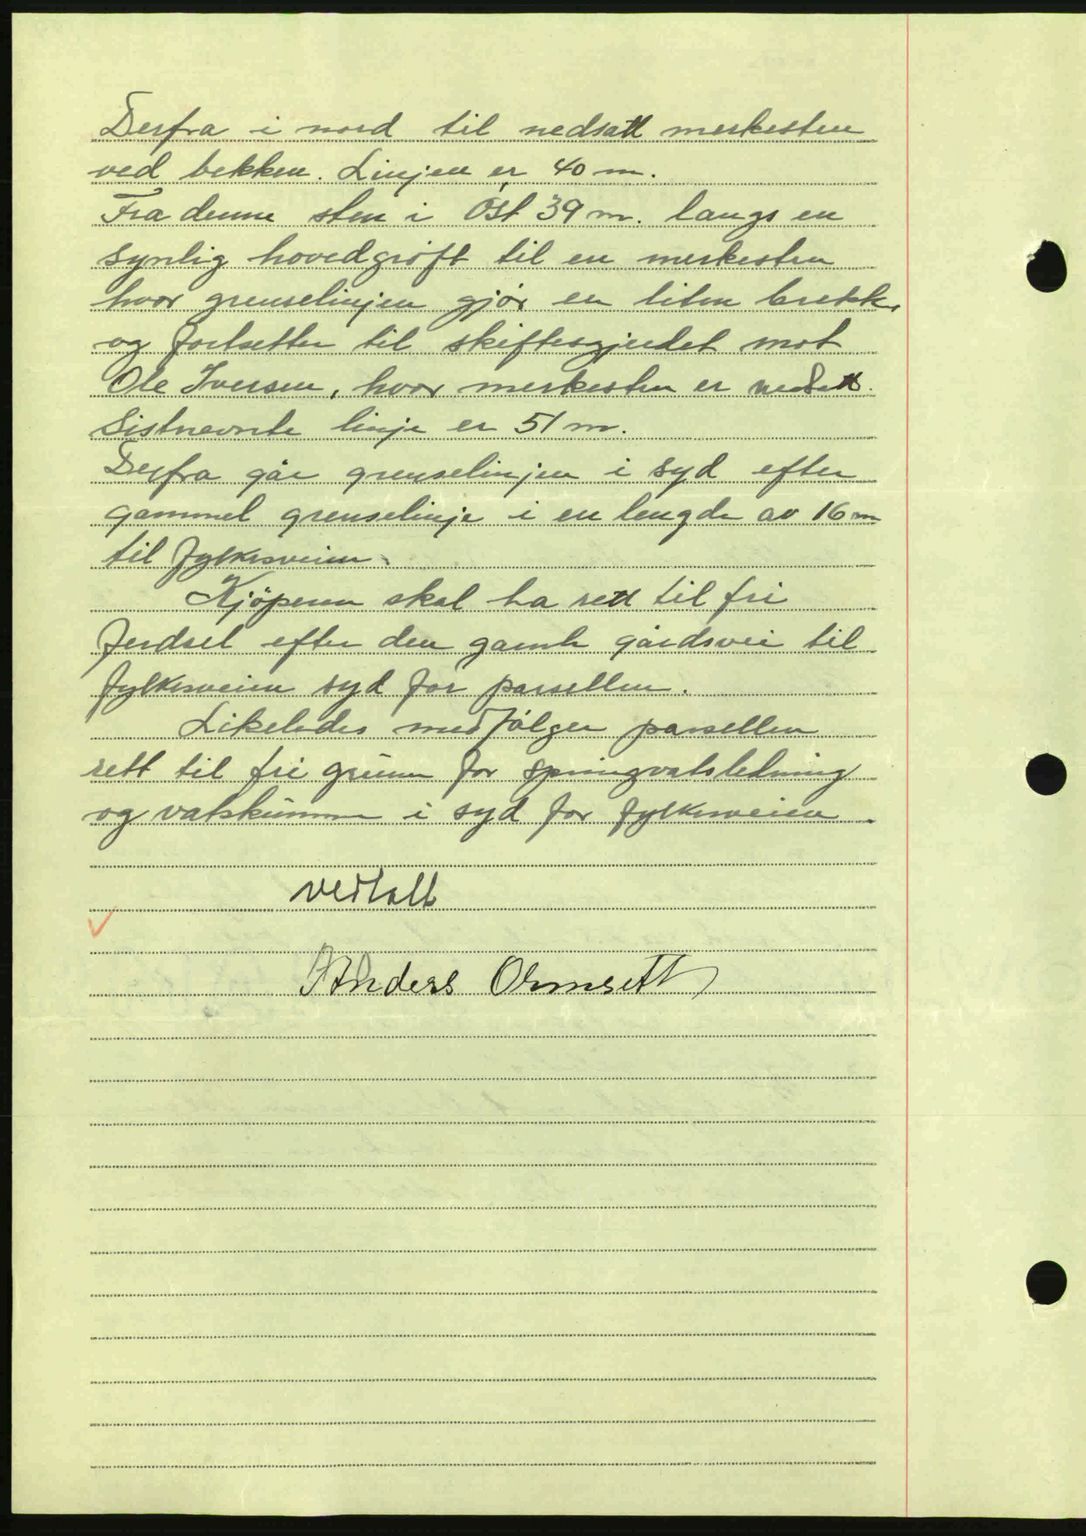 Derfra i nord til nedsatt merkesten
ved bekken. Linjen er 40 m.
Fra denne sten i Øst 39 m. langs en
synlig hovedgrøft til en merkesten
hvor grenselinjen gjør en liten brekk,
og fortsetter til skiftesgjerdet mot
Ole Iversen, hvor merkesten er nedsatt.
Sistnevnte linje er 51 m.
Derfra går grenselinjen i syd efter
gammel grenselinje i en lengde av 16 m
til fylkesveien.
Kjöperen skal ha rett til fri
ferdsel efter den gamle gårdsvei til
fylkesveien syd for parsellen.
Likeledes medfølger parsellen
rett til fri grunn for springvatsledning
og vatskumme i syd for fylkesveien.
Vedtatt
Anders Ormsett